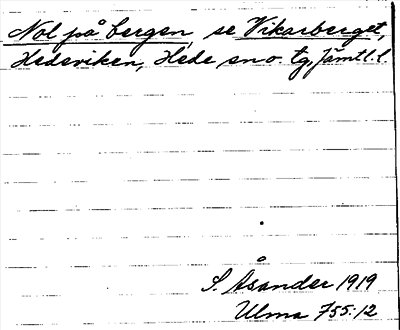 Nol på bergen, se Vikarberget,
Hedeviken, Hede sn o. tg, Jämtl. l.
S. Åsander 1919
Ulma 755:12